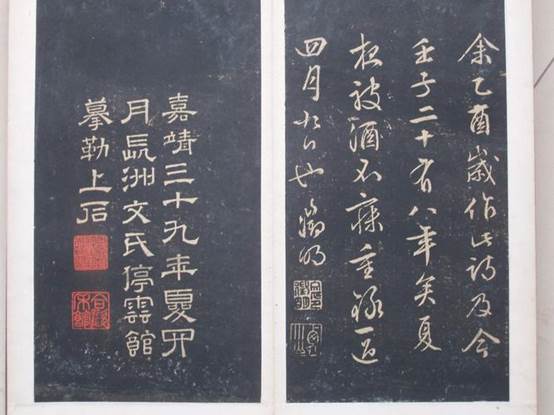 余乙酉歲作此詩及今
壬子二十有八年矣夏
夜被酒不寐重録一過
四月九日也徵明
嘉靖三十九年夏四
月長洲文氏停雲館
摹勒上石